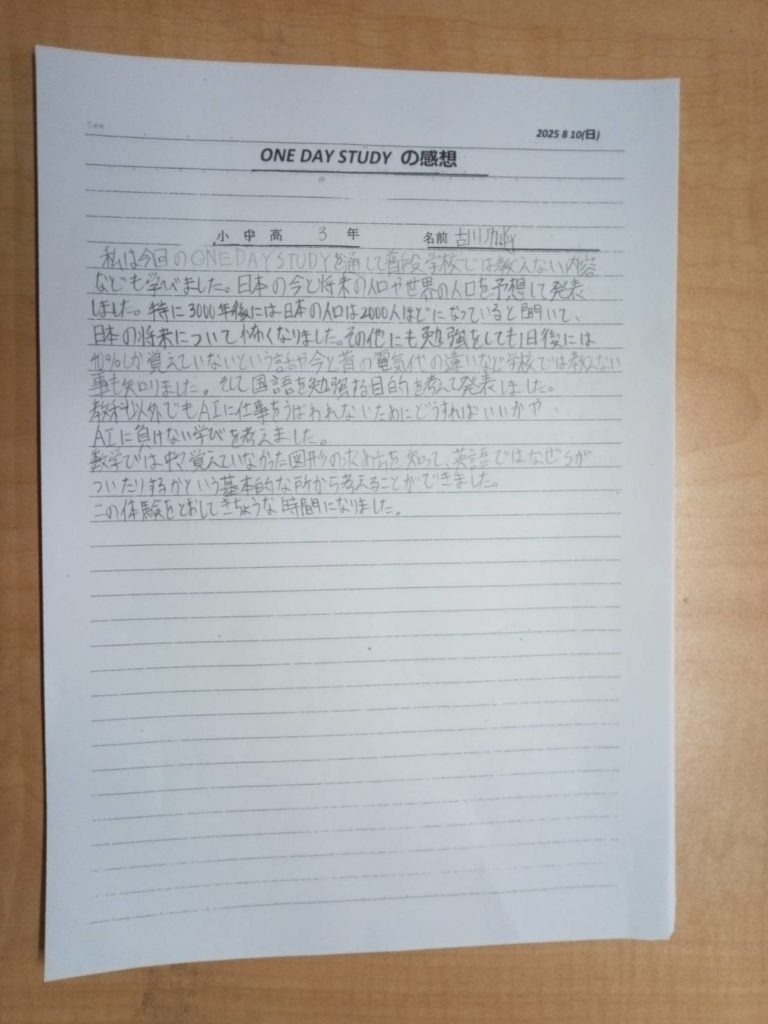 2025 8 10(日)
ONE DAY STUDY の感想
小 中 高 3 年 名前 古川
私は今回のONE DAY STUDYを通して普段学校では教えない内容
なども学べました。日本の今と将来の人口や世界の人口を予想して発表
しました。特に3000年後には日本の人口は2000人ほどになっていると聞いて、
日本の将来について怖くなりました。その他にも勉強をしても1日後には
%しか覚えていないという話や今と昔の電気代の違いなど学校では教えない
事も知りました。そして国語を勉強する目的を考えて発表しました。
教科以外でもAIに仕事をうばわれないためにどうすればいいかや、
AIに負けない学びを考えました。
数学では中々覚えていなかった図形の求め方を知って、英語ではなぜSが
ついたりするかという基本的な所から考えることができました。
この体験をとおしてきちょうな時間になりました。